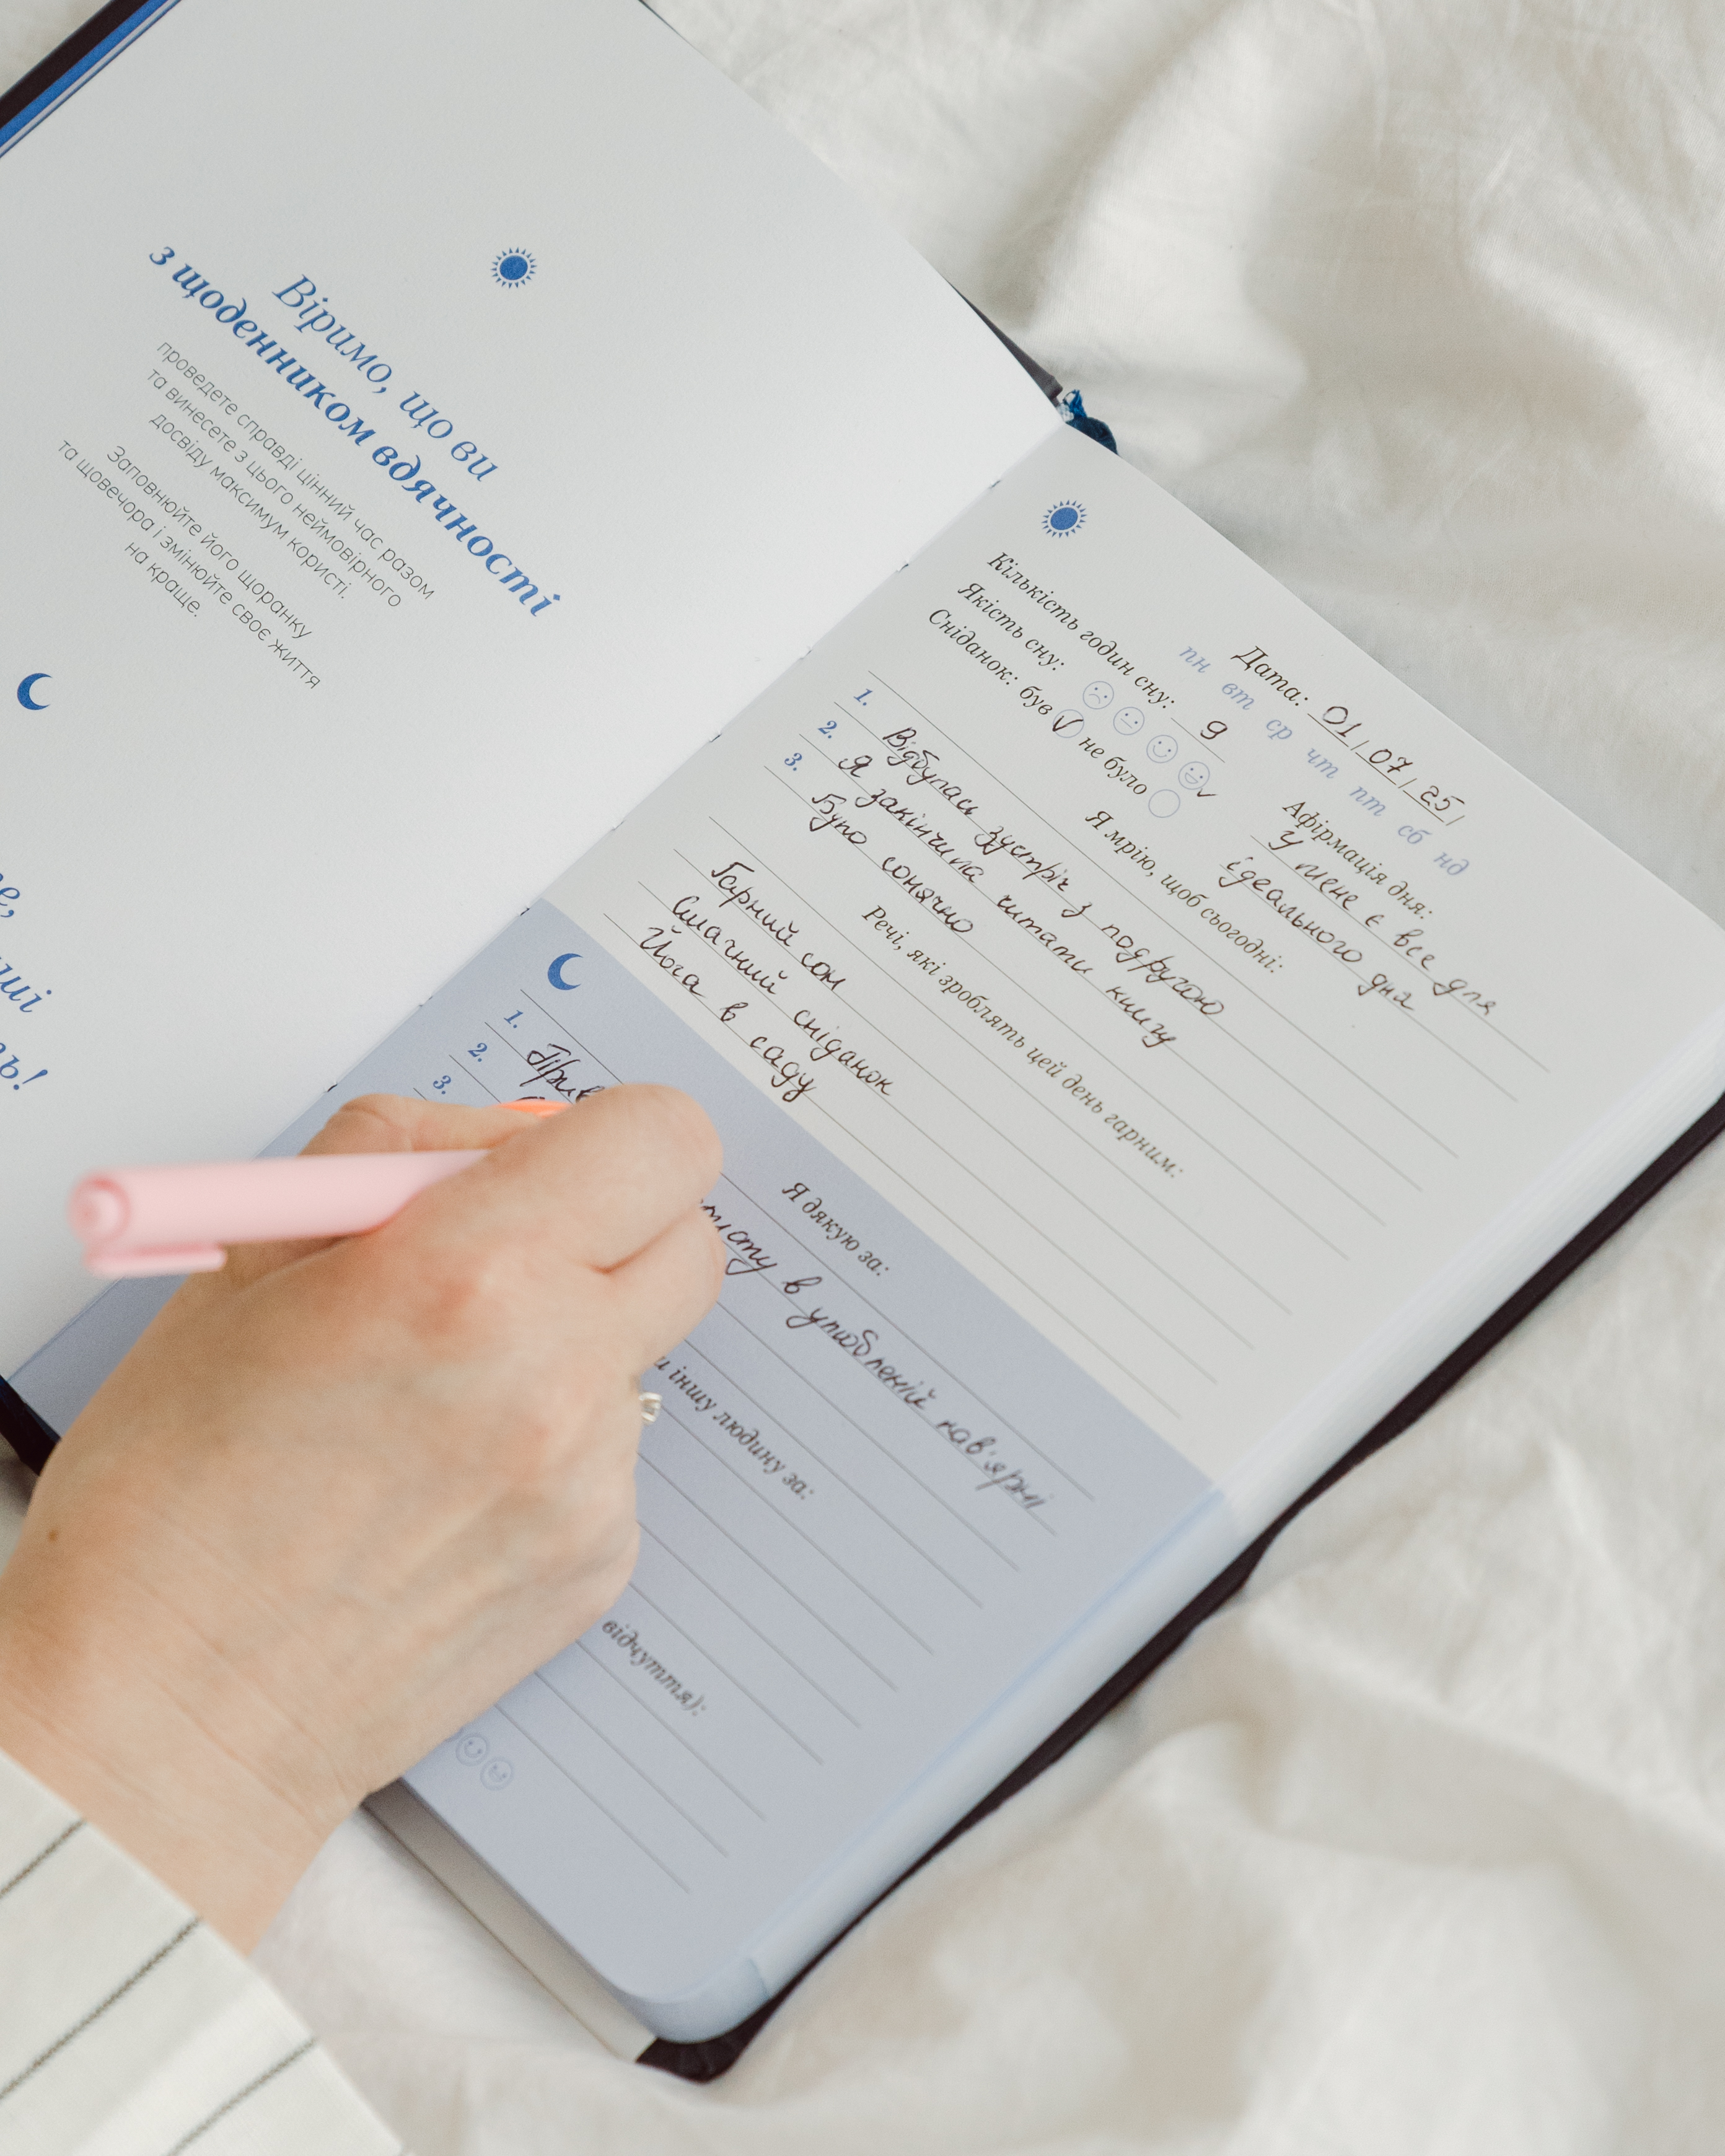 Віримо, що ви
з щоденником вдячності
проведете справді цінний час разом
та винесете з цього неймовірного
досвіду максимум користі.
Заповнюйте його щоранку
та щовечора і змінюйте своє життя
на краще.
Дата: 01/07/25/
пн вт ср чт пт сб нд
Кількість годин сну: 9
Якість сну:
Сніданок: був не було
Афірмація дня:
У мене є все для
ідеального дня
Я мрію, щоб сьогодні:
1. Відбулась зустріч з подругою
2. Я закінчила читати книгу
3. Було сонячно
Речі, які зроблять цей день гарним:
Гарний сон
Смачний сніданок
Йога в саду
Я дякую за:
1.
2. в улюбленій кав'ярні
3.
іншу людину за:
відчуття):